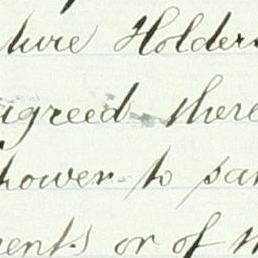 ture Holders
agreed there
power to sa
ents or of